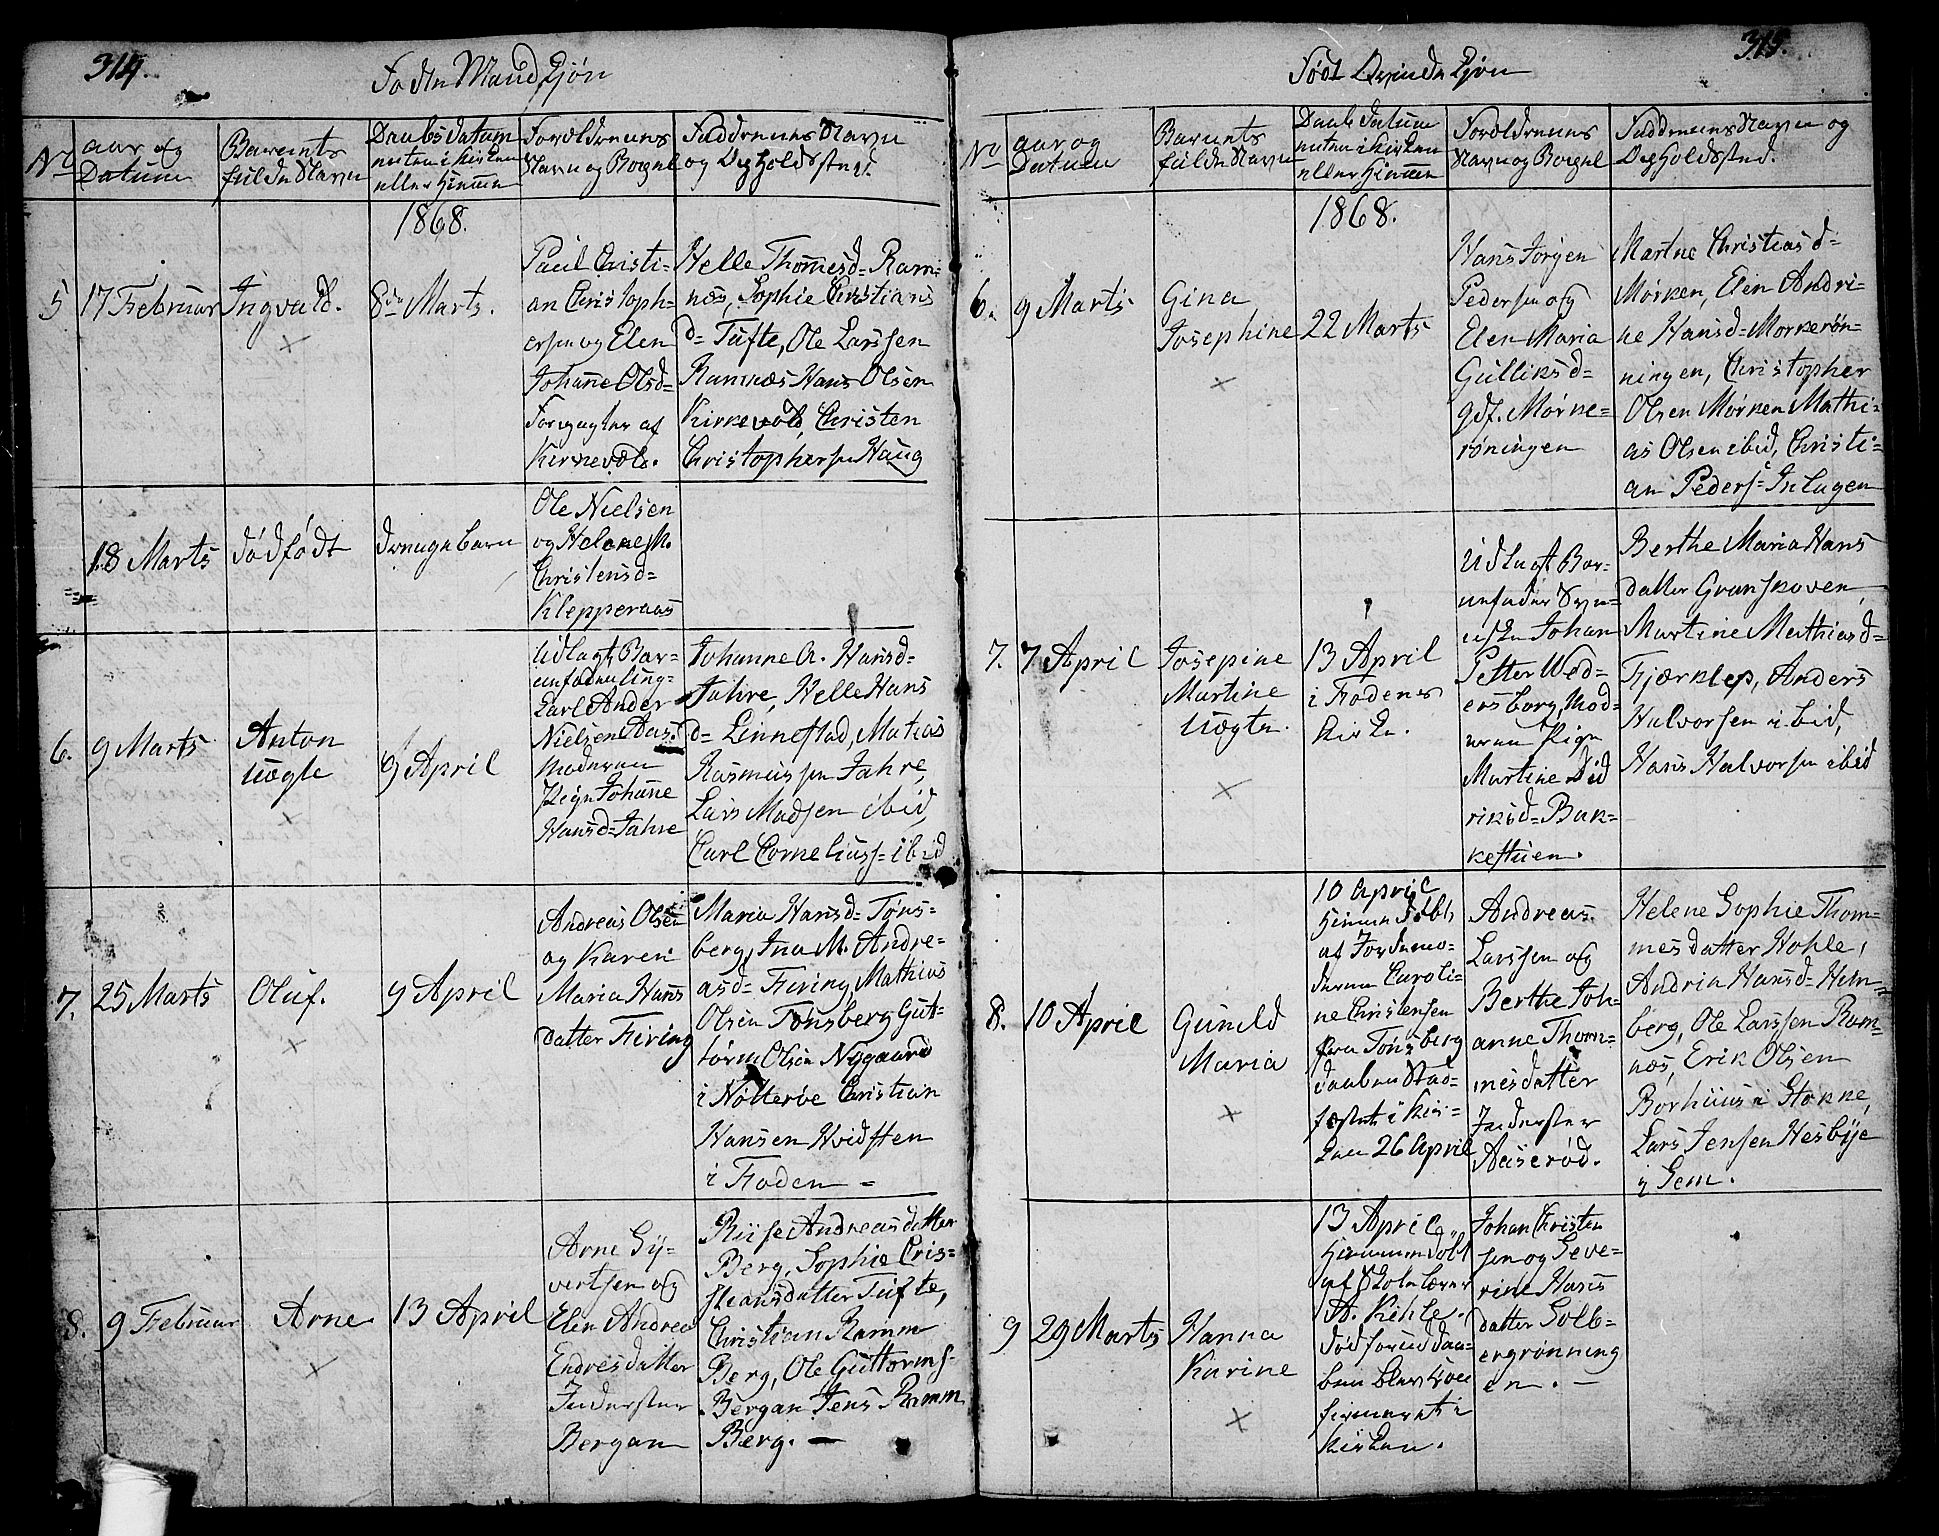 314.
Fødte Mandkjøn
No
aar og
Datum
Barnets
fulde Navn
Daabsdatum
enten i Kirken
eller Hiemme
Forældrenes
Navn og Bopæl
Fadderenes Navn
og Opholdssted.
1868.
5
17 Februar
Ingvald.
8de Marts.
Paul Cristi-
an Christoph-
ersen og Elen
Johanne Olsd-
Forpagter af
Kirkevold.
Helle Thomesd- Ram-
næs, Sophie Christians
d- Tufte, Ole Larssen
Ramnæs Hans Olsen
Kirkevold, Christen
Christophersen Haug
18 Marts
dødfødt
drengebarn
Ole Nielsen
og Helene M.
Christensd-
Klepperaas
6.
9 Marts
Anton
uægte
9 April
Udlagt Bar-
nefader Ung-
Carl Ander
Nielsen Aas.
Moderen
Pige Johanne
Hansd- Jahre
Johanne A. Hansd-
Jahre, Helle Hans
d- Linnestad, Matias
Rasmussen Jahre,
Lars Madsen ibid,
Carl Corneliuss- ibid
7.
25 Marts
Oluf.
9 April
Andreas Olsen
og Karen
Maria Hans
datter Firing
Maria Hansd- Tøns-
berg, Ina M. Andre-
asd- Firing, Mathias
Olsen Tønsberg Gut-
torm Olsen Nygaard
i Nøtterøe Christian
Hansen Hvidsten
i Foden -
8.
9 Februar
Arne
13 April
Arne Sy-
vertsen og
Elen Andrea
Endresdatter
Inderster
Bergan
Riise Andreasdatter
Berg, Sophie Cris-
tiansdatter Tufte,
Christian Ramm
Berg, Ole Guttorms-
Bergan Jens Ramm
Berg. -
315.
Født Qvindekjøn
No
aar og
Datum
Barnets
fulde Navn
Daabs Datum
enten i Kirken
eller Hiemme
Forældrenes
Navn og Bopæl
Fadderenes Navn og
Opholdssted.
1868.
6.
9 Marts
Gina
Josephine
22 Marts
Hans Jørgen
Pedersen og
Elen Maria
Gulliksd-
gdf. Mørke-
røningen
Martne Christiasd-
Mørken, Elen Andri-
ne Hansd- Mørkerøn-
ningen, Christopher
Olsen Mørken Mathi-
as Olsen ibid, Christi-
an Peders- Inlagen
7.
7 April
Josepine
Martine
uægte.
13 April
i Fodens
Kirke.
Udlagt Bar-
nefader Sven-
ske Johan
Petter Wed-
ersborg, Mod-
eren Pige
Martine Did
riksd- Bak-
kestuen.
Berthe Maria Hans
datter Granskoven,
Martine Mathiasd-
Fjærklep, Anders
Halvorsen ibid,
Hans Halvorsen ibid
8.
10 April
Guneld
Maria
10 April
Hiemmedøbt
af Jordemo-
deren Caroli-
ne Christensen
fra Tønsberg
daaben stad-
fæstet i Kir-
ken 26 April
Andreas
Larssen og
Berthe Joh-
anne Thom-
mesdatter
Inderster
Aaserød.
Helene Sophie Thom-
mesdatter Hohle,
Andria Hansd- Hem-
berg, Ole Larssen Ram-
næs, Erik Olsen
Borhuus i Stokke,
Lars Jensen Hesbye
i Sem.
9
29 Marts
Hanna
Karine
13 April
Hiemmedøbt
af Skolelærer
A. Kihle.
død forud daa-
ben blev kon
firmeret i
Kirken.
Johan Christen
sen og Seve-
rine Hans
datter Solb-
ergrønning
en. -